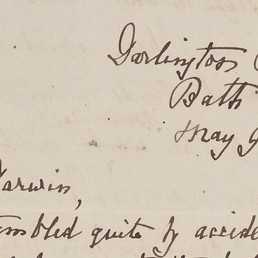 Darlington
Bath
May 9
Darwin,
umbled quite by accide